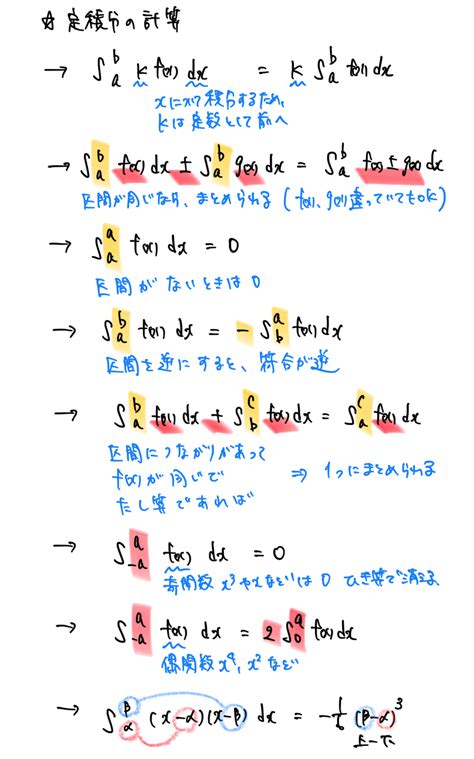 ☆ 定積分の計算
→ ∫_a^b k f(x) dx = k ∫_a^b f(x) dx
xについて積分するため、
kは定数として前へ
→ ∫_a^b f(x) dx ± ∫_a^b g(x) dx = ∫_a^b f(x) ± g(x) dx
区間が同じなら、まとめられる (f(x), g(x)違っていてもOK)
→ ∫_a^a f(x) dx = 0
区間がないときは 0
→ ∫_a^b f(x) dx = - ∫_b^a f(x) dx
区間を逆にすると、符合が逆
→ ∫_a^b f(x) dx + ∫_b^c f(x) dx = ∫_a^c f(x) dx
区間につながりがあって
f(x)が同じで ⇒ 1つにまとめられる
たし算であれば
→ ∫_{-a}^a f(x) dx = 0
奇関数 x³やxなどは 0 ひき算で消える
→ ∫_{-a}^a f(x) dx = 2 ∫_0^a f(x) dx
偶関数 x⁴, x² など
→ ∫_α^β (x-α)(x-β) dx = -1/6 (β-α)³
上-下